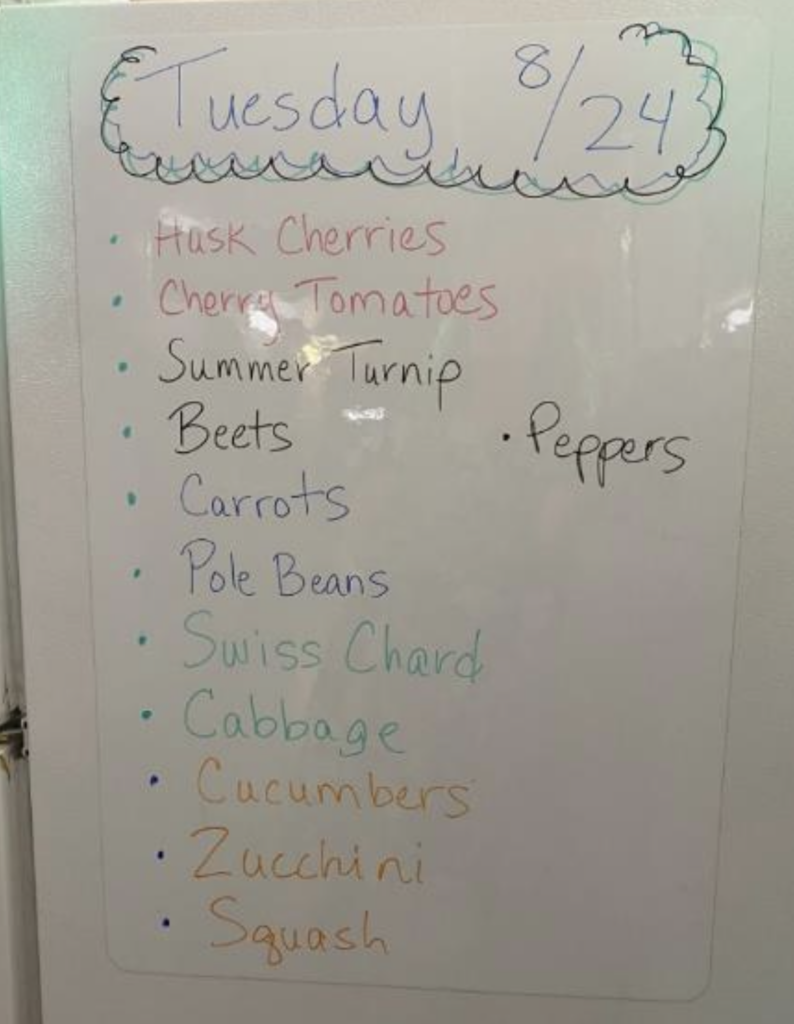 Tuesday 8/24
• Husk Cherries
• Cherry Tomatoes
• Summer Turnip
• Beets
• Peppers
• Carrots
• Pole Beans
• Swiss Chard
• Cabbage
• Cucumbers
• Zucchini
• Squash